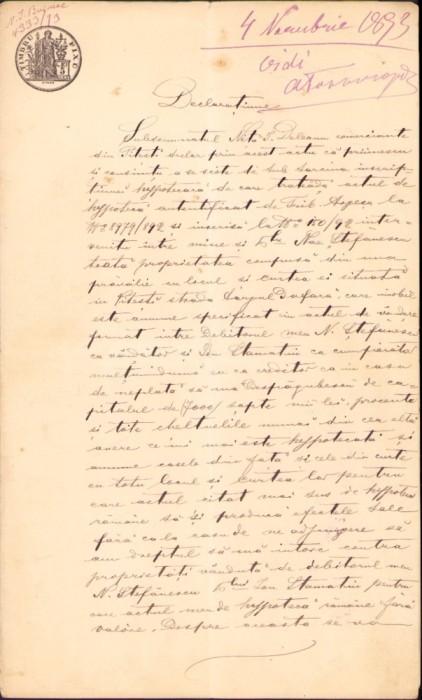 4333/93
TIMBRU FIX
4 Noembrie 1893
Declarațiune
Subsemnatul Niță I. Deleanu comerciante
din Pitesti declar prin acest actu că priimescu
și consimtu a se sista de sub sarcina inscrip
țiunei hypotecară de care tratează actul de
hypotecă autentificat de Trib. Argeșu la
No 2979/892 și inscrisă la No 150/92 inter-
venită intre mine și Dlu Nae Ștefănescu
toată proprietatea compusă din una
prăvălie cu locul și curtea ei situată
in Pitesti strada Târgul d'afară, care imobil
este anume specificat in actul de vindere
format intre debitorul meu N. Ștefănescu
ca vândător și Ion Stamatin ca cumpărător
mulțumindumă eu ca creditor ca in casu
de neplată să mă despăgubescu de ca-
pitalul de 7000/ șapte mii lei, procente
și tote cheltuelile numai din cea altă
avere ce imi mai este hypotecată și
anume casele din față și cele din curte
cu totu locul și curtea lor pentru
care actul citat mai sus de hypotecă
române să iși producă efectele sale
fără ca la casu de ne ajungere să
am dreptul să mă intorc contra
proprietăți vândută de debitorul meu
N. Ștefănescu Dlui Ion Stamatin pentru
care actul meu de hypotecă române fără
valóre. Despre aceasta se va